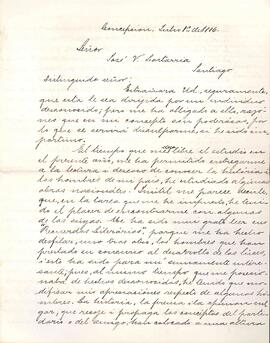 Concepcion, Julio 1º de 1886.
Señor
José V. Lastarria
Santiago
Distinguido señor:
Estrañará Ud., seguramente,
que esta le sea dirigida por un individuo
desconocido; pero me ha obligado a ello, razo-
nes que en mi concepto son poderosas, por
lo que se servirá disculparme, si he sido im-
portuno.
El tiempo que me libre el estudio en
el presente año, me ha permitido entregarme
a la lectura i deseoso de conocer la historia i
los hombres de mi país, he estudiado algunas
obras nacionales. Inútil me parece decirle,
que, en la tarea que me he impuesto, he teni-
do el placer de encontrarme con algunas
de las suyas. Me ha sido mui grato leer sus
"Recuerdos Literarios", porque me ha hecho
desfilar, uno tras otro, los hombres que han
prestado su concurso al desarrollo de las luces.
Este ha sido para mí sumamente intere-
sante, pues, al mismo tiempo que me posesio-
naba de hechos desconocidos, he tenido que mo-
dificar mis apreciaciones respecto de algunos hom-
bres. La historia, la prensa i la opinion vul-
gar, que recoje i propaga los conceptos del parti-
dario o del amigo, han colocado a una altura